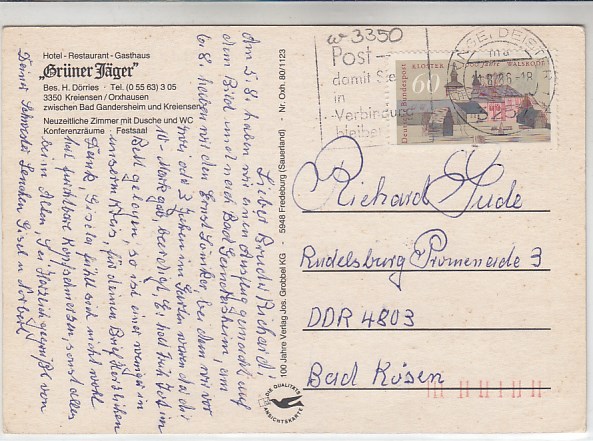 Hotel - Restaurant - Gasthaus
„Grüner Jäger"
Bes. H. Dörries · Tel. (0 55 63) 3 05
3350 Kreiensen / Orxhausen
zwischen Bad Gandersheim und Kreiensen
Neuzeitliche Zimmer mit Dusche und WC
Konferenzräume Festsaal
Lieber Bruder Richard!
Am 5.8. haben wir einen Ausflug gemacht auf
dem Bild und nach Bad Gandersheim, am
6.8. haben wir den Ernst besucht bei dem wir vor
zwei oder 3 Jahren im Garten waren der die
10 - Mark gab, beerdigt. Er hat fest im
Bett gelegen, so ist einer weniger in
unserm Kreis, für deinen Brief herzlichen
Dank, Gisela fühlt sich nicht wohl
hat furchtbare Kopfschmerzen, sonst alles
beim Alten. Sei herzlich gegrüßt von
Deiner Schwester Lenchen Gisel u.
100 Jahre Verlag Jos. Grobbel KG - 5948 Fredeburg (Sauerland) - Nr. Oxh. 80/1123
w 3350
Post -
damit Sie
in
Verbindung
bleiben
Deutsche Bundespost
KLOSTER WALSRODE
60
-18
Richard Jude
Rudelsburg Promenade 3
DDR 4803
Bad Kösen
DIE QUALITÄTS
ANSICHTSKARTE